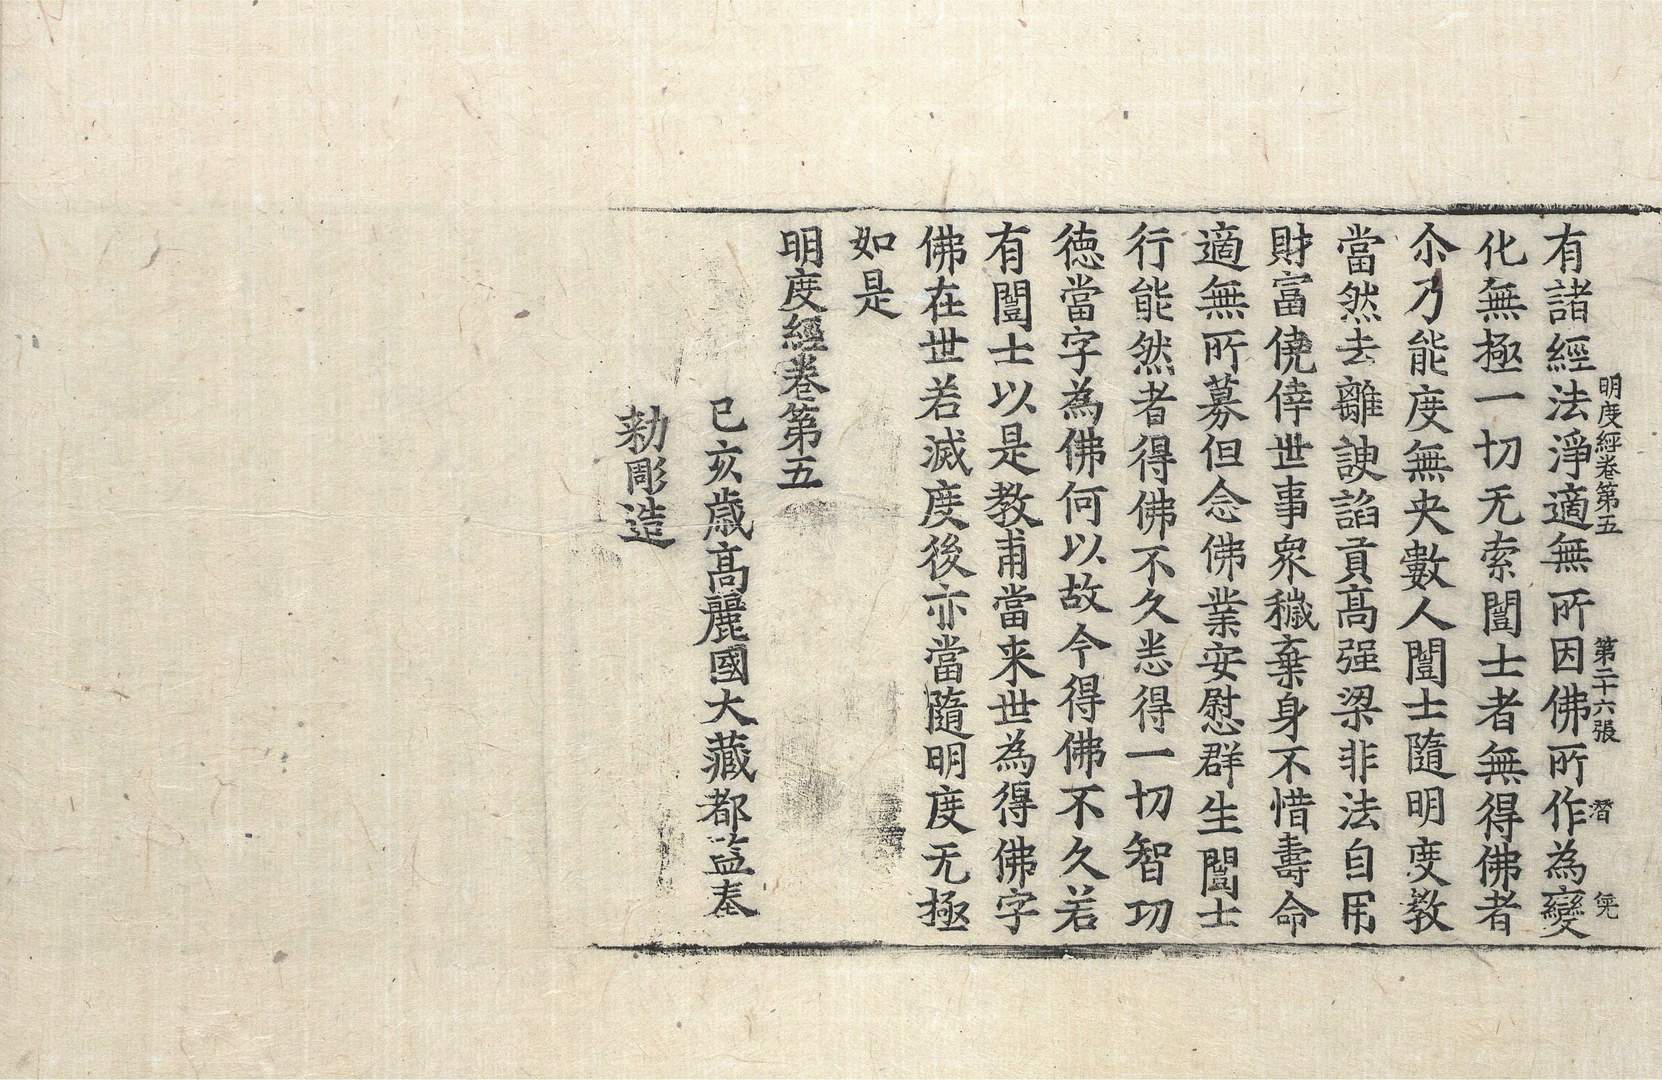 明度經卷第五　第二十六張　潛
有諸經法淨適無所因佛所作為變
化無極一切无索闓士者無得佛者
尒乃能度無央數人闓士隨明度教
當然去離諛諂貢高强梁非法自用
財富僥倖世事衆穢棄身不惜壽命
適無所募但念佛業安慰群生闓士
行能然者得佛不久悉得一切智功
德當字為佛何以故今得佛不久若
有闓士以是教甫當来世為得佛字
佛在世若滅度後亦當隨明度无極
如是
明度經卷第五
己亥歳高麗國大藏都監奉
勑彫造